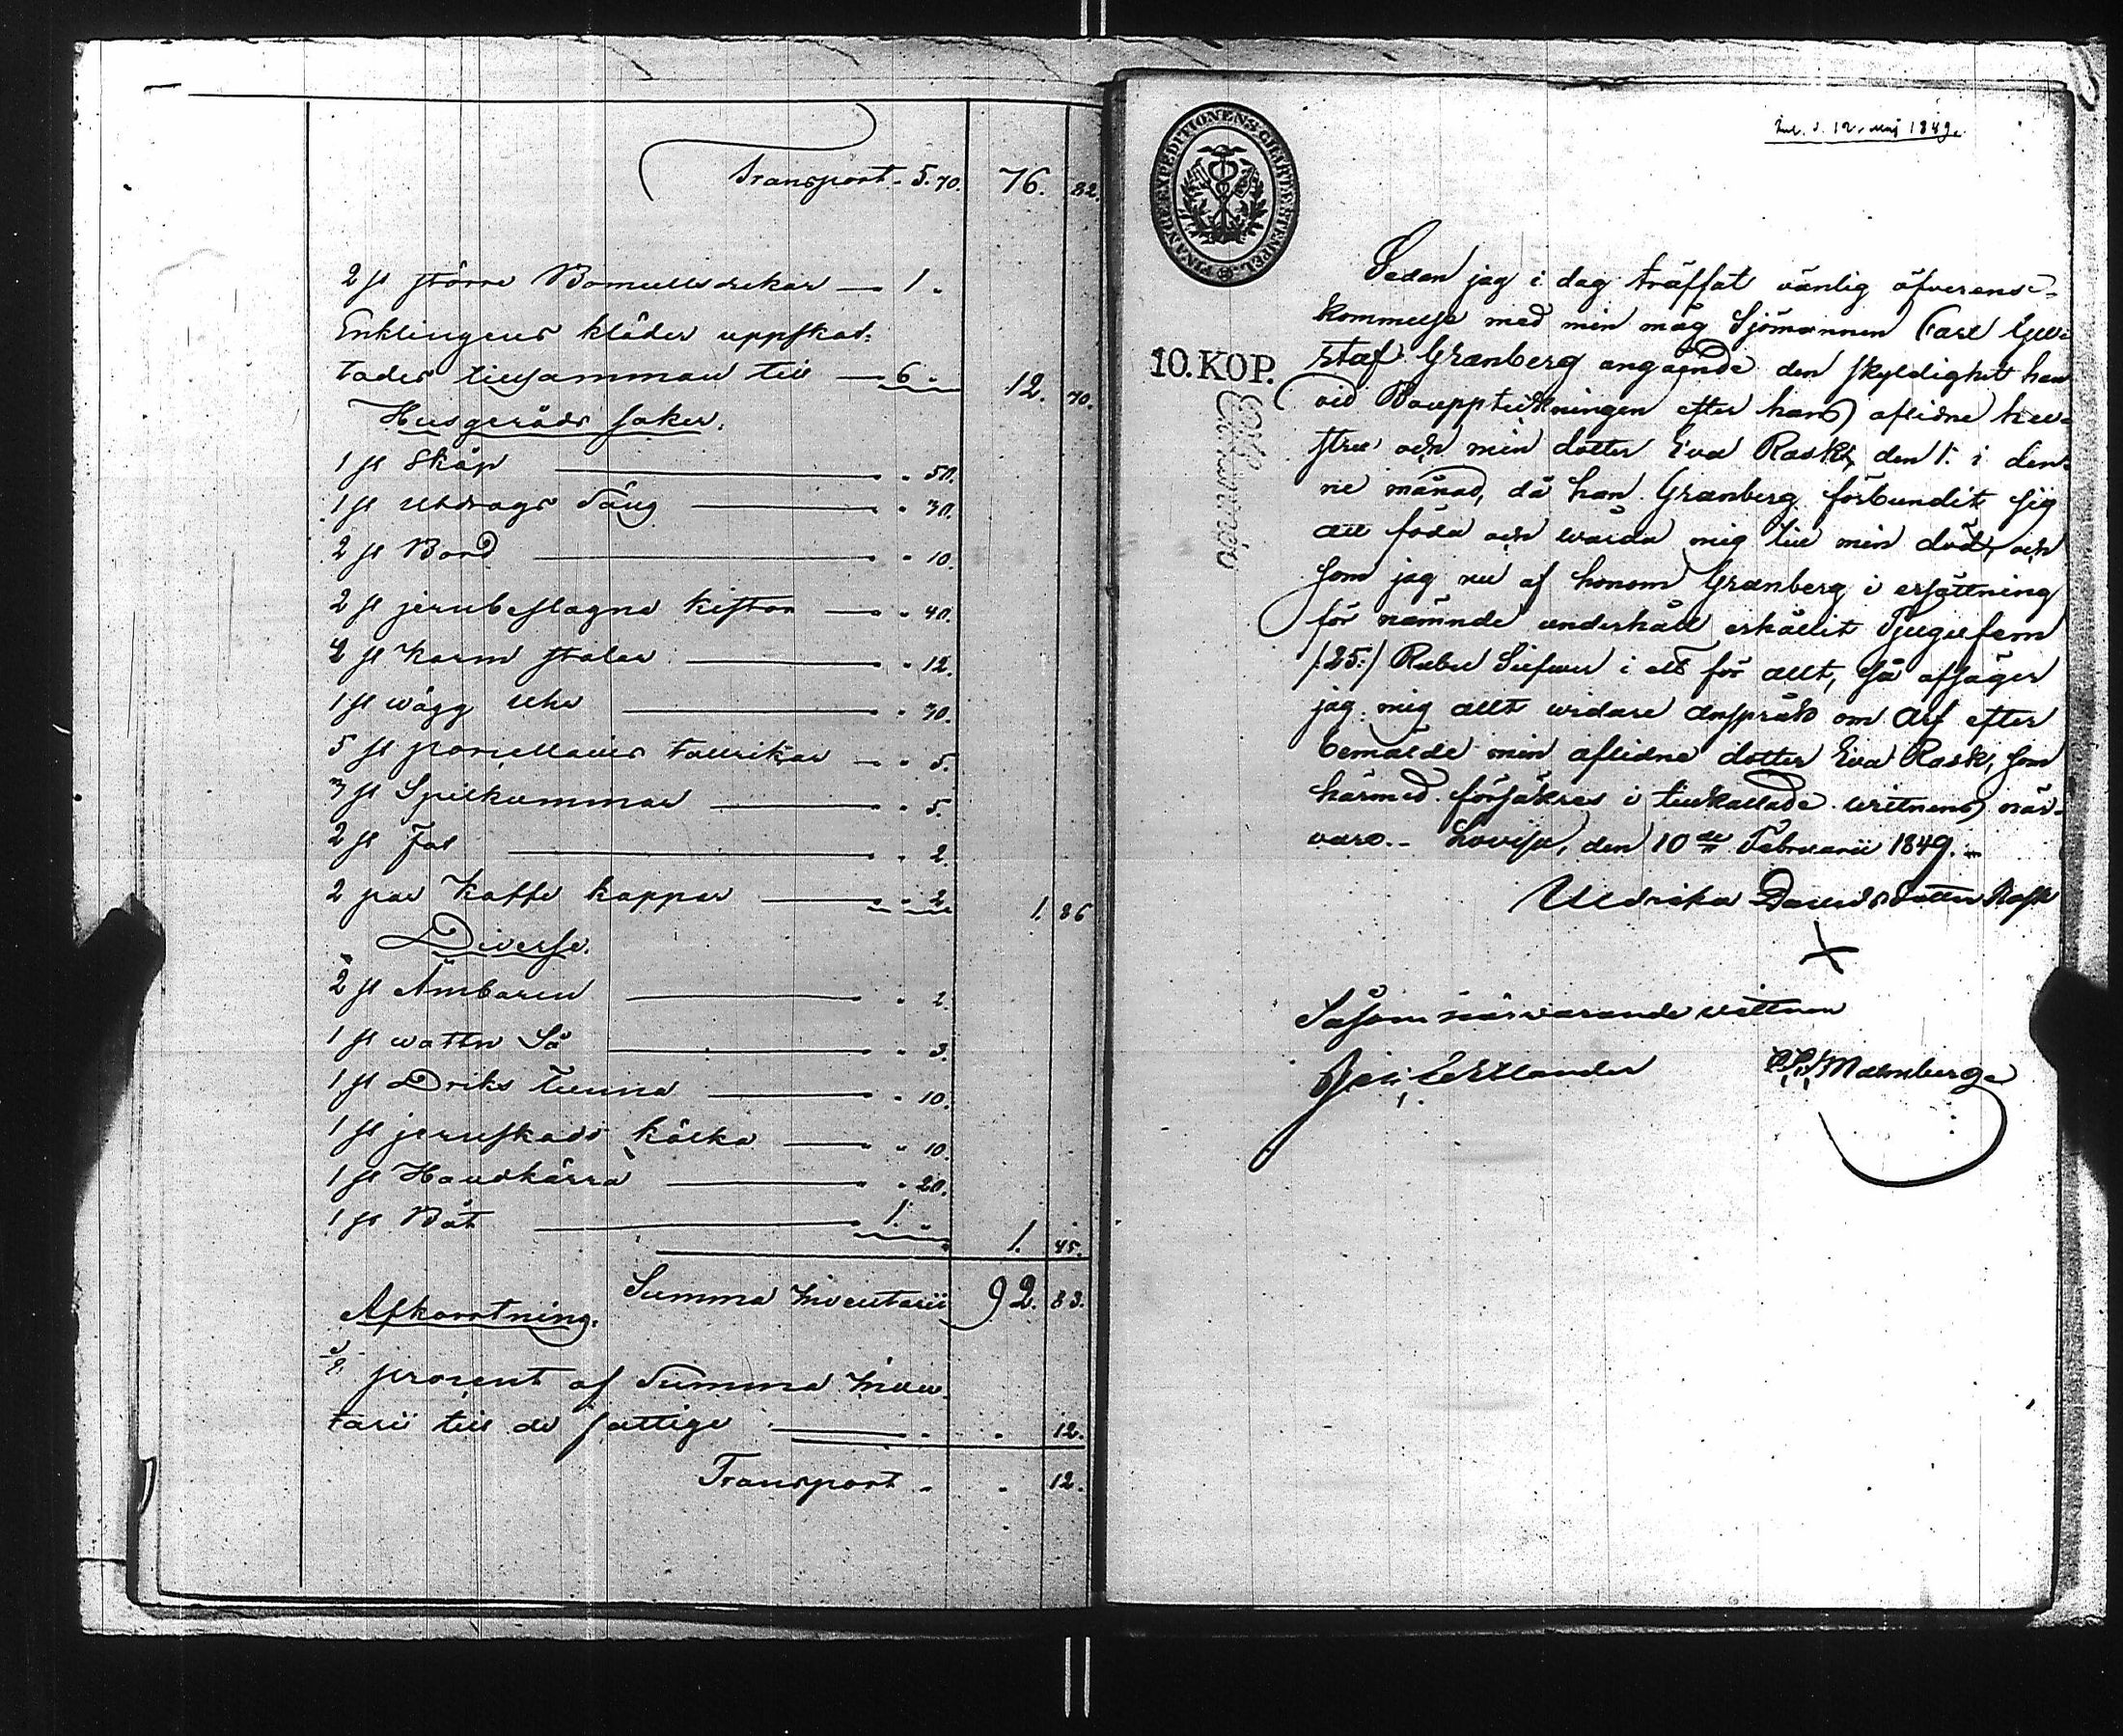 Transport - 5.70. 76. 82.
2 st större Bomullsdukar — 1 "
Enklingens kläder uppskat-
tades tillsamman till — 6 " 12. 70.
Husgeråds saker.
1 st Skåp — " 50.
1 st Utdrags Säng — " 30.
2 st Bord — " 10.
2 st jernbeslagna kistor — " 40.
4 st Karm stolar — " 12.
1 st wägg Uhr — " 30.
5 st porcellains tallrikar — " 5.
3 st Spilkummar — " 5.
2 st Fat — " 2.
2 par Kaffe koppar — " 2. 1. 86
Diverse.
2 st Ämbaren — " 2.
1 st watten Så — " 3.
1 st Driks tunna — " 10.
1 st jernskodd kälka — " 10.
1 st Handkärra — " 20.
1 st Båt — 1. " 1. 45.
Summa Inventarii 92. 83.
Afkortning.
procent af Summa Inven-
tarii till de fattige — " 12.
Transport - " 12.
Inl. d. 12. Maj 1849.
FINANCEEXPEDITIONENS CHARTÆ STEMPEL
10. KOP.
Sedan jag i dag träffat vänlig öfverens-
kommelse med min måg Sjömannen Carl Gu-
staf Granberg angående den skyldighet han
vid Bouppteckningen efter hans aflidne hu-
stru och min dotter Eva Rask, den 1. i den-
ne månad, då han Granberg förbundit sig
att föda och wårda mig till min död, och
som jag nu af honom Granberg i ersättning
för nämnde underhåll erhållit Tjugufem
/:25:/ Rubel Silfwer i ett för allt, så afsäger
jag mig allt widare anspråk om Arf efter
bemälde min aflidne dotter Eva Rask, som
härmed försäkres i tillkallade wittnens när-
varo. - Lovisa, den 10de Februarii 1849. -
Uldrika Davidsdotter Rask
X
Såsom närvarande vittnen
Malmberg